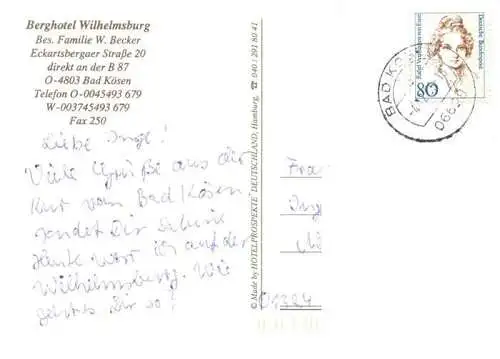 Berghotel Wilhelmsburg
Bes. Familie W. Becker
Eckartsbergaer Straße 20
direkt an der B 87
O-4803 Bad Kösen
Telefon O-0045493 679
W-003745493 679
Fax 250
Liebe Inge!
Viele Grüße aus der
Kur von Bad Kösen
sendet Dir
Heute war ich auf der
Wilhelmsburg. Wie
geht es Dir so?
© Made by HOTELPROSPEKTE DEUTSCHLAND, Hamburg, ☎ 040 / 291 80 41
Deutsche Bundespost
Rahel Varnhagen von Ense
80
BAD KÖ
066
Frau
Ing
01324